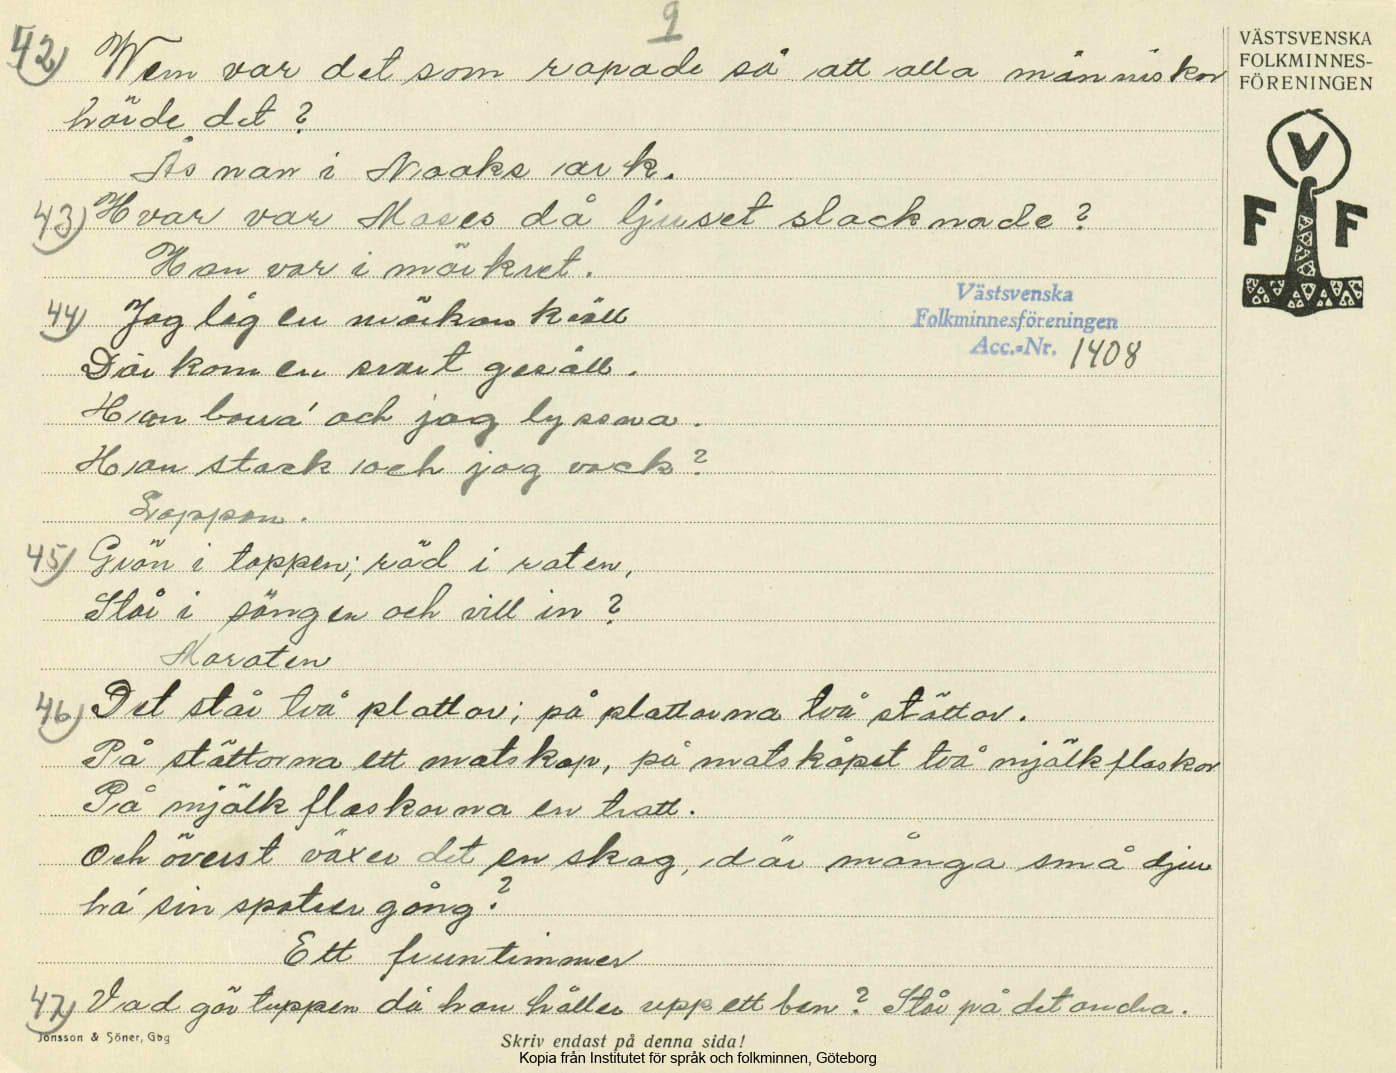 9
42) Wem var det som ropade så att alla människor
hörde det?
Åsnan i Noaks ark.
43) Hvar var Moses då ljuset slocknade?
Han var i mörkret.
44) Jag låg en mörkan kväll
Där kom en svart gesäll.
Han borra' och jag lyssna.
Han stack och jag vack?
Loppan.
45) Grön i toppen; röd i roten,
Står i sängen och vill in?
Moroten
46) Det står två plattor; på plattorna två stöttor.
På stöttorna ett matskap, på matskåpet två mjölkflaskor
På mjölkflaskorna en tratt.
Och överst växer det en skog, där många små djur
ha' sin spatser gång?
Ett fruntimmer
47) Vad gör tuppen då han håller upp ett ben? Står på det andra.
VÄSTSVENSKA
FOLKMINNES-
FÖRENINGEN
V
F F
Västsvenska
Folkminnesföreningen
Acc.-Nr. 1408
Jonsson & Söner, Gbg
Skriv endast på denna sida!
Kopia från Institutet för språk och folkminnen, Göteborg